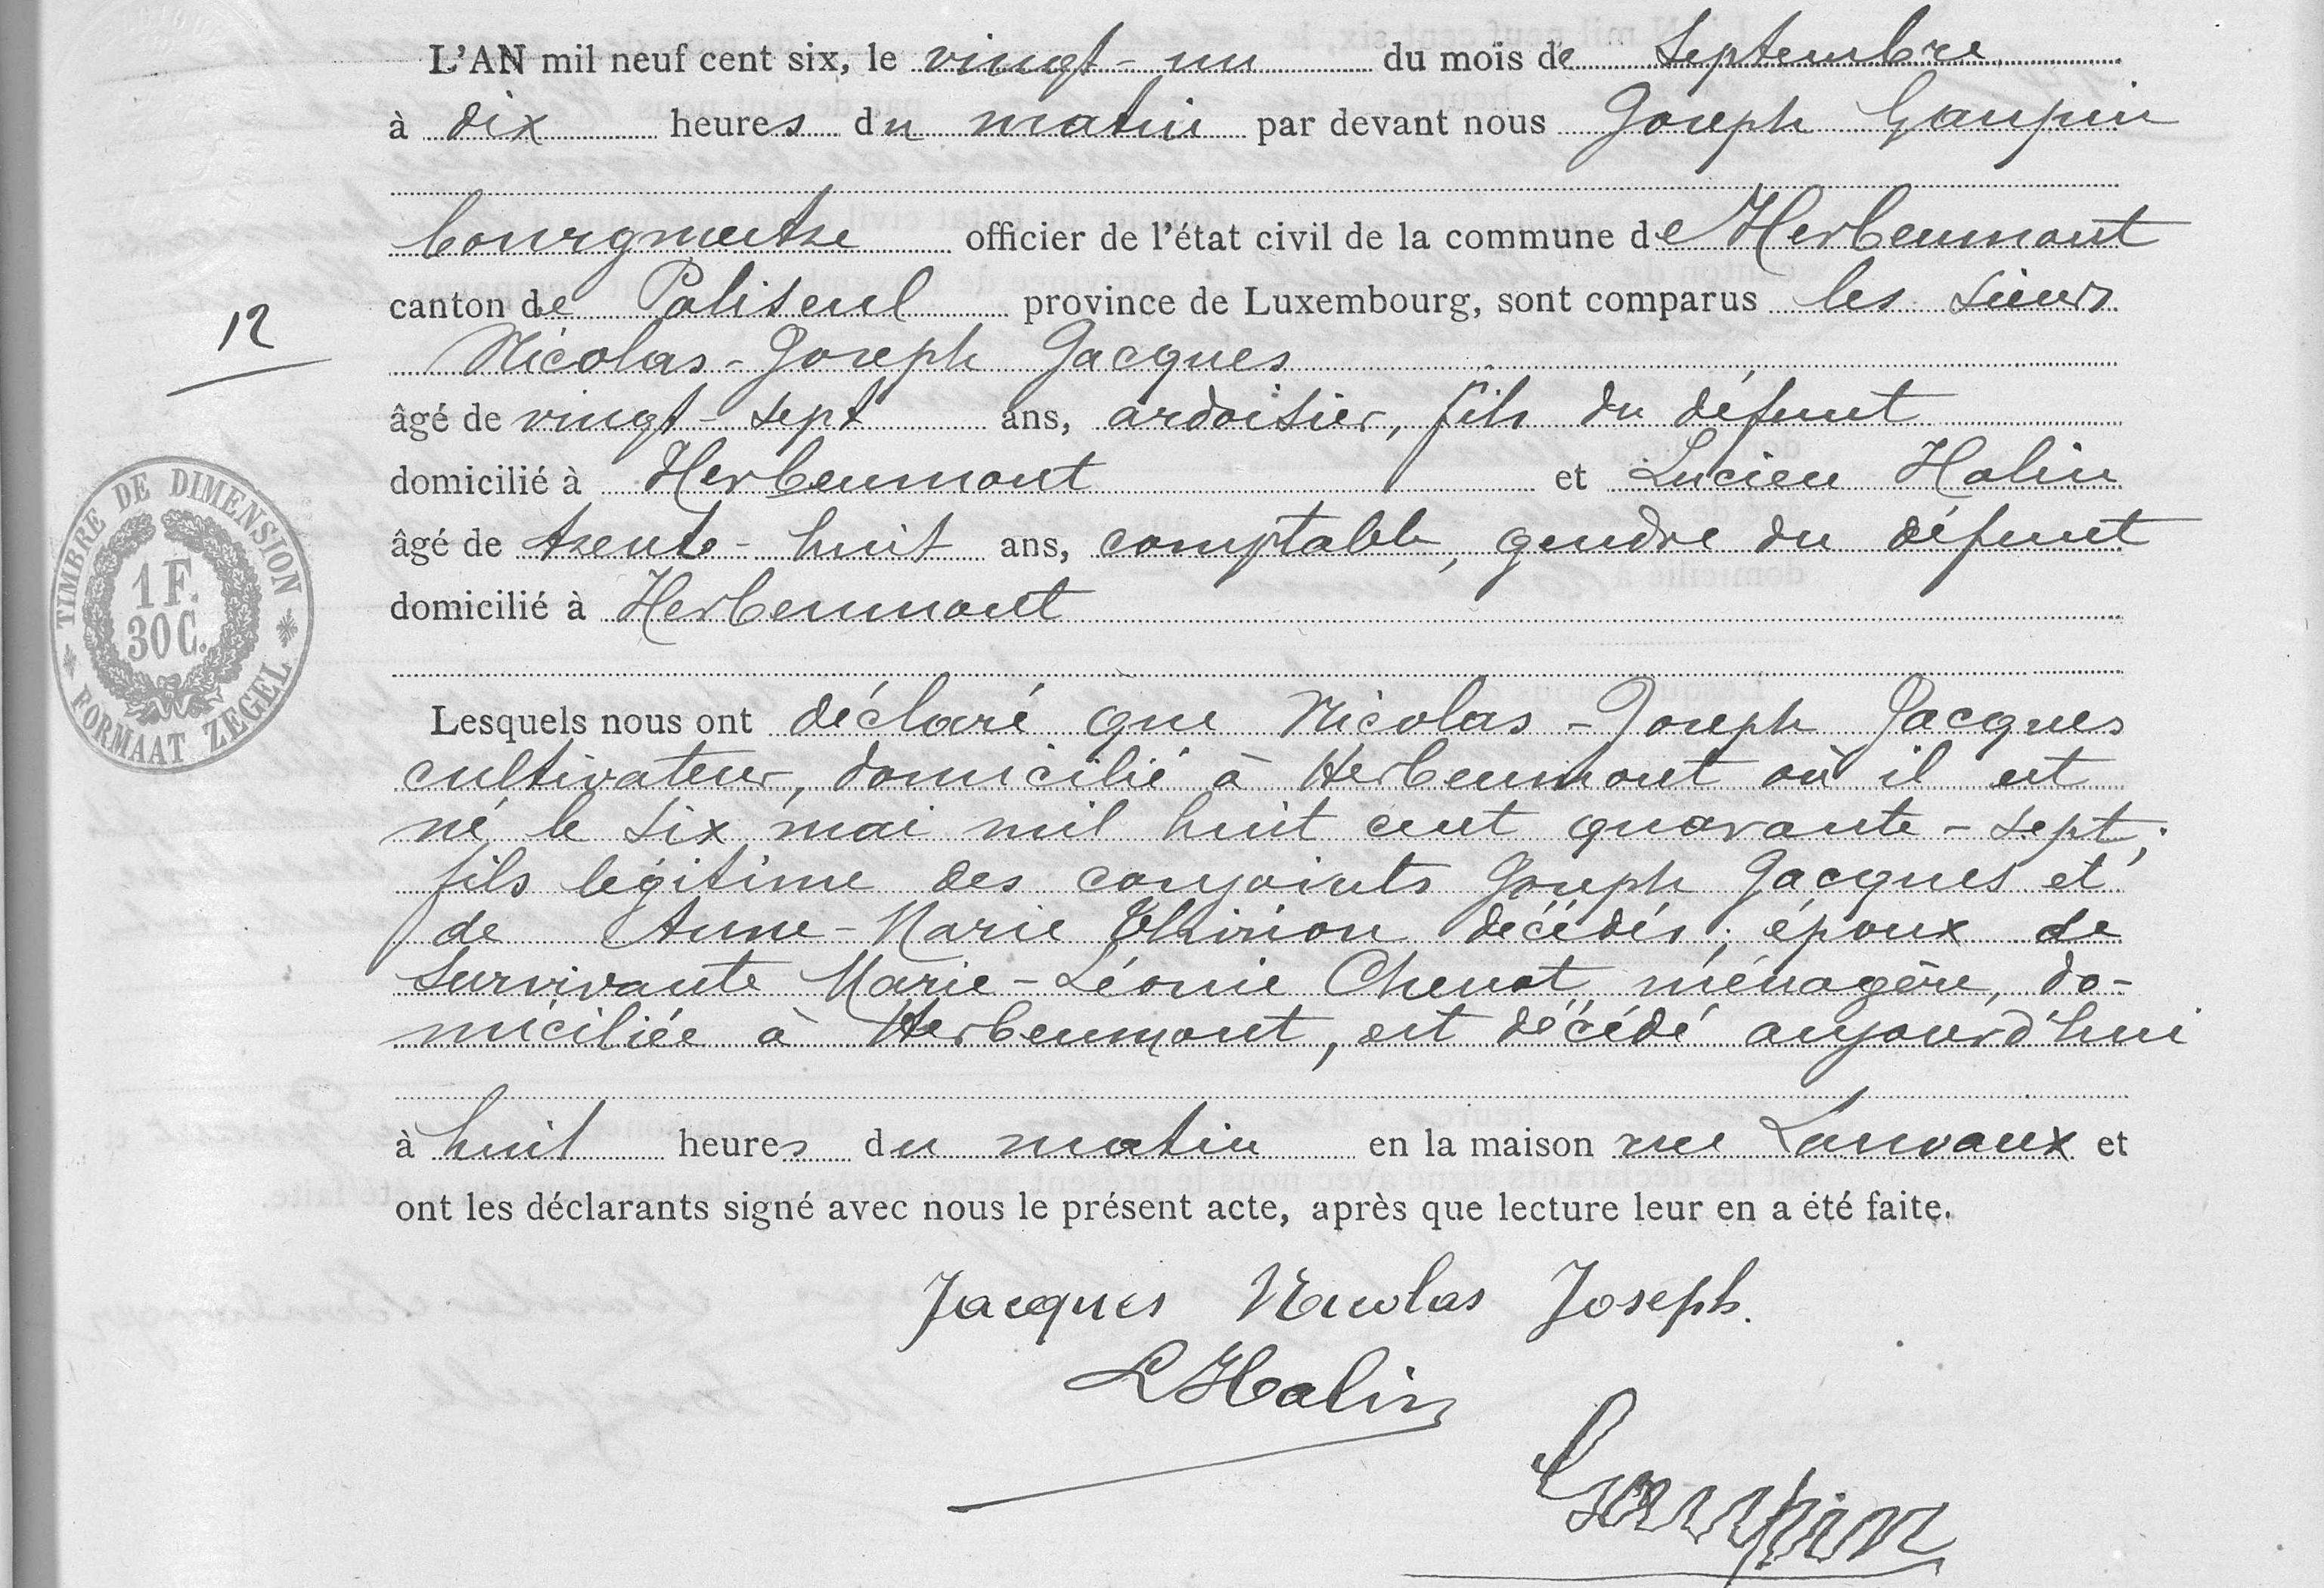 L'AN mil neuf cent six, le vingt-un du mois de Septembre
à dix heures du matin par devant nous Joseph Gaupin
bourgmestre officier de l'état civil de la commune de Herbeumont
canton de Paliseul province de Luxembourg, sont comparus les sieurs
12
Nicolas-Joseph Jacques
âgé de vingt-sept ans, ardoisier, fils du défunt
domicilié à Herbeumont et Lucien Halin
âgé de trente-huit ans, comptable, gendre du défunt
domicilié à Herbeumont
TIMBRE DE DIMENSION
1 F.
30 C.
FORMAAT ZEGEL
Lesquels nous ont déclaré que Nicolas-Joseph Jacques
cultivateur, domicilié à Herbeumont où il est
né le six mai mil huit cent quarante-sept;
fils légitime des conjoints Joseph Jacques et
de Anne-Marie Thirion décédés; époux de
survivante Marie-Léonie Chenot ménagère, do-
miciliée à Herbeumont, est décédé aujourd'hui
à huit heures du matin en la maison rue Lauvaux et
ont les déclarants signé avec nous le présent acte, après que lecture leur en a été faite.
Jacques Nicolas Joseph.
L Halin
Gaupin